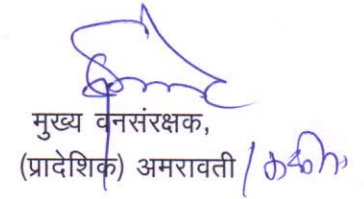 मुख्य वनसंरक्षक,
(प्रादेशिक) अमरावती /